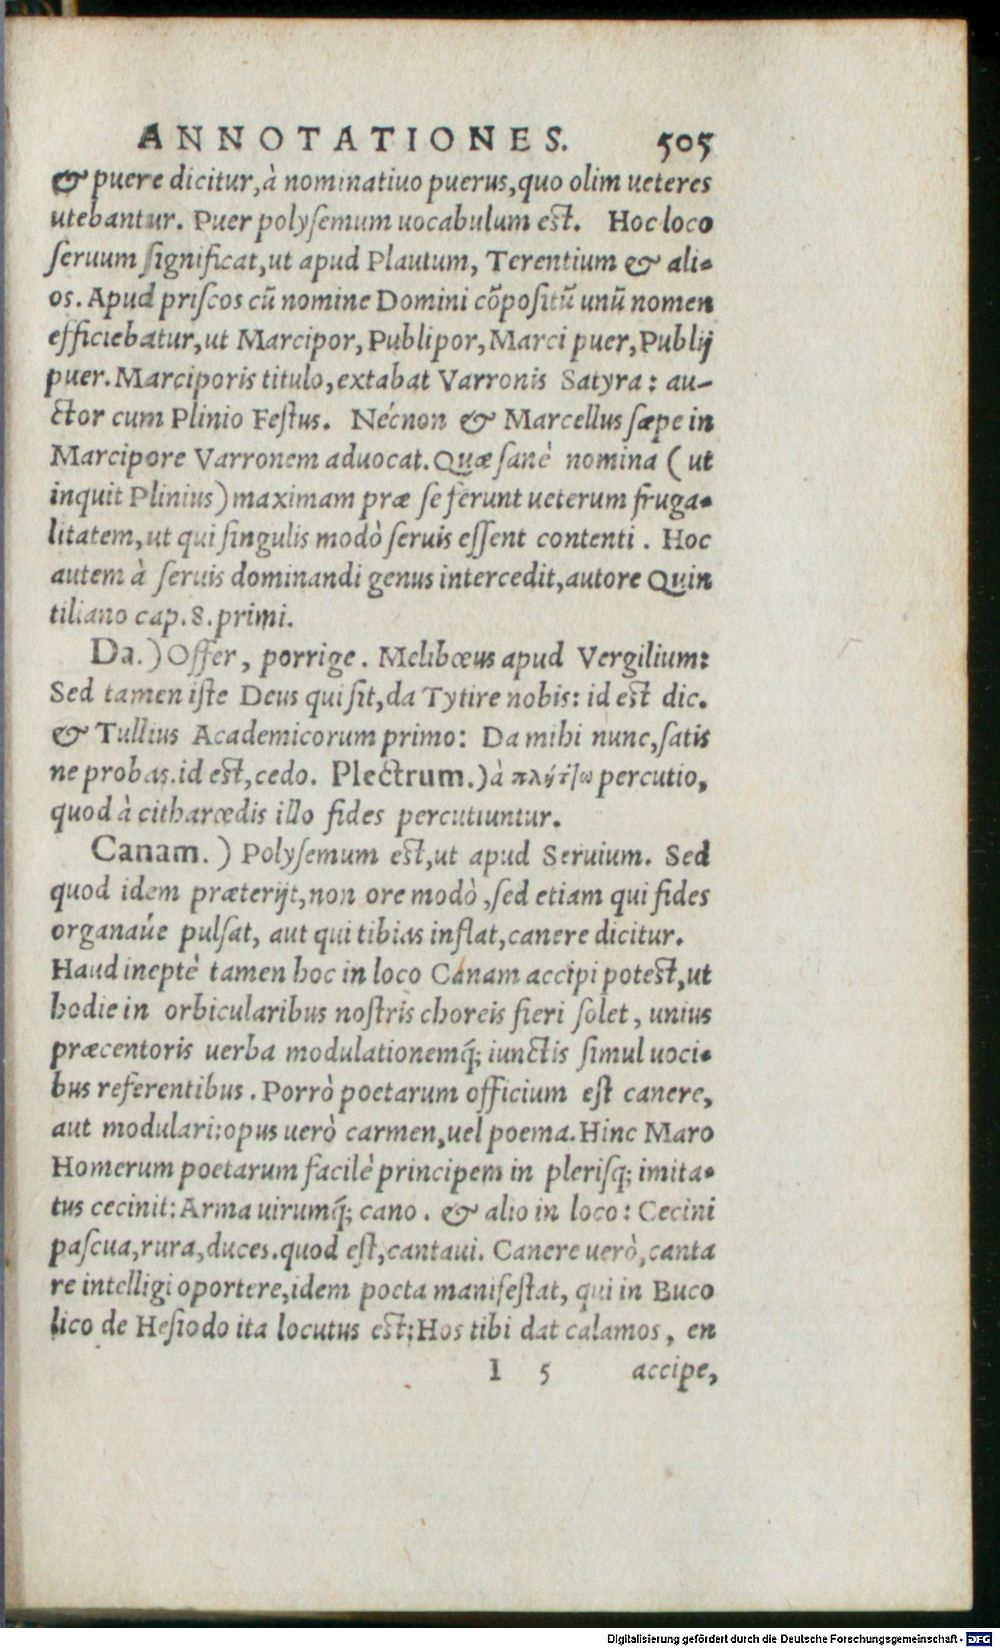 ANNOTATIONES. 505
& puere dicitur, à nominatiuo puerus, quo olim ueteres
utebantur. Puer polysemum uocabulum est. Hoc loco
seruum significat, ut apud Plautum, Terentium & ali-
os. Apud priscos cũ nomine Domini cõpositũ unũ nomen
efficiebatur, ut Marcipor, Publipor, Marci puer, Publij
puer. Marciporis titulo, extabat Varronis Satyra: au-
ctor cum Plinio Festus. Nécnon & Marcellus sæpe in
Marcipore Varronem aduocat. Quæ sanè nomina (ut
inquit Plinius) maximam præ se ferunt ueterum fruga-
litatem, ut qui singulis modò seruis essent contenti. Hoc
autem à seruis dominandi genus intercedit, autore Quin
tiliano cap. 8. primi.
Da.) Offer, porrige. Melibœus apud Vergilium:
Sed tamen iste Deus qui sit, da Tytire nobis: id est dic.
& Tullius Academicorum primo: Da mihi nunc, satis
ne probas. id est, cedo. Plectrum.) à percutio,
quod à citharœdis illo fides percutiuntur.
Canam.) Polysemum est, ut apud Seruium. Sed
quod idem præterijt, non ore modò, sed etiam qui fides
organaúe pulsat, aut qui tibias inflat, canere dicitur.
Haud ineptè tamen hoc in loco Canam accipi potest, ut
hodie in orbicularibus nostris choreis fieri solet, unius
præcentoris uerba modulationemq́; iunctis simul uoci-
bus referentibus. Porrò poetarum officium est canere,
aut modulari: opus uerò carmen, uel poema. Hinc Maro
Homerum poetarum facilè principem in plerisq; imita-
tus cecinit: Arma uirumq́; cano. & alio in loco: Cecini
pascua, rura, duces. quod est, cantaui. Canere uerò, canta
re intelligi oportere, idem poeta manifestat, qui in Buco
lico de Hesiodo ita locutus est: Hos tibi dat calamos, en
I 5 accipe,
Digitalisierung gefördert durch die Deutsche Forschungsgemeinschaft - DFG